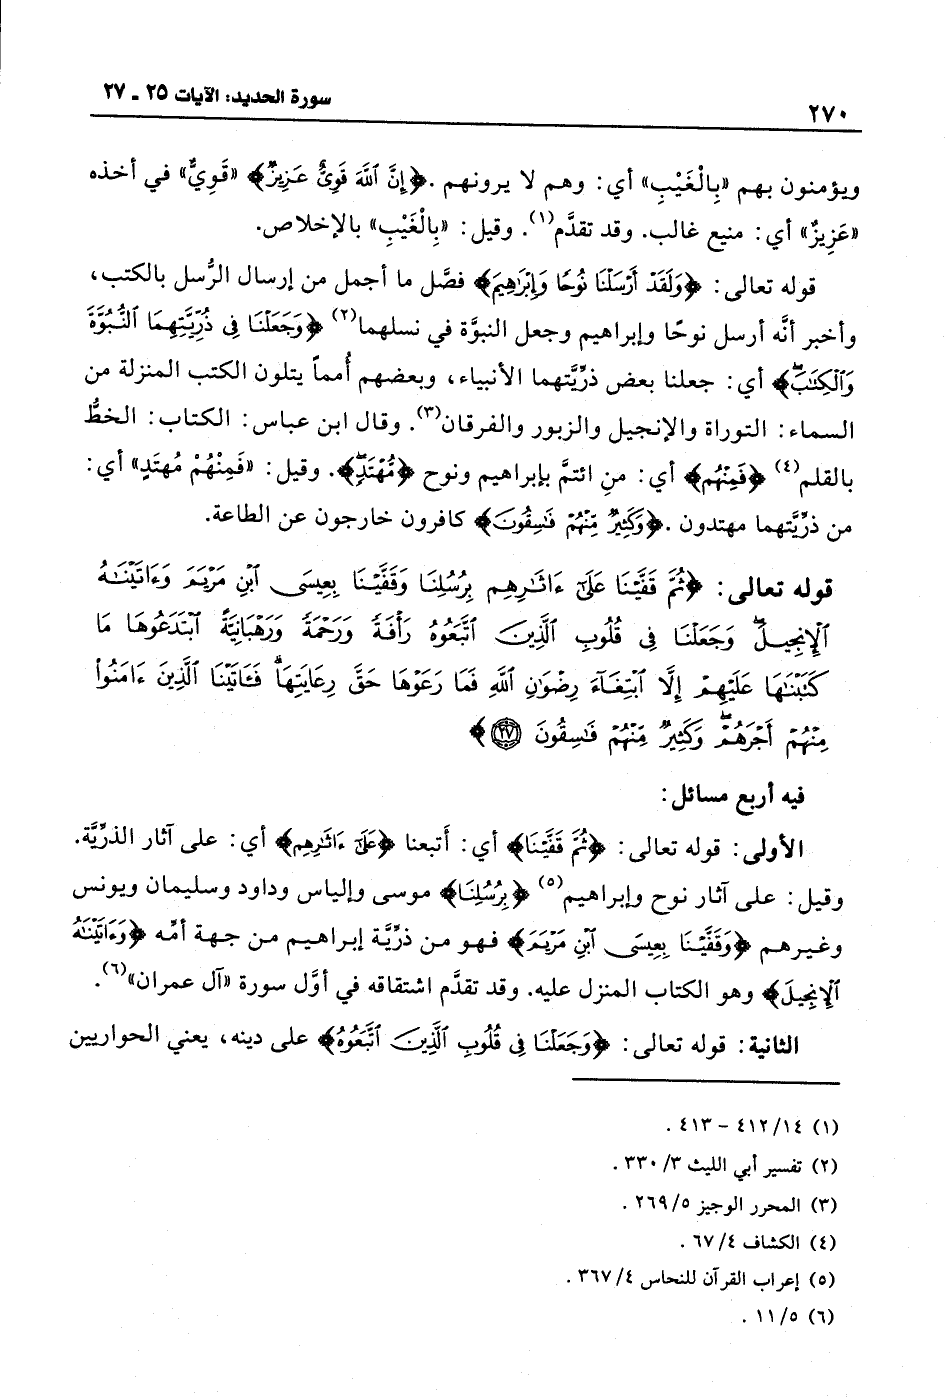 سورة الحديد: الآيات ٢٥ ـ ٢٧
٢٧٠
ويؤمنون بهم «بِالْغَيْبِ» أي: وهم لا يرونهم. ﴿إِنَّ ٱللَّهَ قَوِىٌّ عَزِيزٌ﴾ «قَوِيٌّ» في أخذه
«عَزِيزٌ» أي: منيع غالب. وقد تقدَّم(١). وقيل: «بِالْغَيْبِ» بالإخلاص.
قوله تعالى: ﴿وَلَقَدْ أَرْسَلْنَا نُوحًا وَإِبْرَٰهِيمَ﴾ فصَّل ما أجمل من إرسال الرُّسل بالكتب،
وأخبر أنَّه أرسل نوحًا وإبراهيم وجعل النبوَّة في نسلهما(٢) ﴿وَجَعَلْنَا فِى ذُرِّيَّتِهِمَا ٱلنُّبُوَّةَ
وَٱلْكِتَٰبَۖ﴾ أي: جعلنا بعض ذرِّيَّتهما الأنبياء، وبعضهم أُمماً يتلون الكتب المنزلة من
السماء: التوراة والإنجيل والزبور والفرقان(٣). وقال ابن عباس: الكتاب: الخطُّ
بالقلم(٤) ﴿فَمِنْهُم﴾ أي: مِنِ ائتمَّ بإبراهيم ونوح ﴿مُّهْتَدٍۖ﴾. وقيل: «فَمِنْهُمْ مُهتَدٍ» أي:
من ذرِّيَّتهما مهتدون. ﴿وَكَثِيرٌ مِّنْهُمْ فَٰسِقُونَ﴾ كافرون خارجون عن الطاعة.
قوله تعالى: ﴿ثُمَّ قَفَّيْنَا عَلَىٰٓ ءَاثَٰرِهِم بِرُسُلِنَا وَقَفَّيْنَا بِعِيسَى ٱبْنِ مَرْيَمَ وَءَاتَيْنَٰهُ
ٱلْإِنجِيلَۖ وَجَعَلْنَا فِى قُلُوبِ ٱلَّذِينَ ٱتَّبَعُوهُ رَأْفَةً وَرَحْمَةً وَرَهْبَانِيَّةً ٱبْتَدَعُوهَا مَا
كَتَبْنَٰهَا عَلَيْهِمْ إِلَّا ٱبْتِغَآءَ رِضْوَٰنِ ٱللَّهِ فَمَا رَعَوْهَا حَقَّ رِعَايَتِهَاۖ فَـَٔاتَيْنَا ٱلَّذِينَ ءَامَنُوا۟
مِنْهُمْ أَجْرَهُمْۖ وَكَثِيرٌ مِّنْهُمْ فَٰسِقُونَ ٢٧﴾
فيه أربع مسائل:
الأولى: قوله تعالى: ﴿ثُمَّ قَفَّيْنَا﴾ أي: أَتبعنا ﴿عَلَىٰٓ ءَاثَٰرِهِم﴾ أي: على آثار الذرِّيَّة.
وقيل: على آثار نوح وإبراهيم(٥) ﴿بِرُسُلِنَا﴾ موسى وإلياس وداود وسليمان ويونس
وغيرهم ﴿وَقَفَّيْنَا بِعِيسَى ٱبْنِ مَرْيَمَ﴾ فهو من ذرِّيَّة إبراهيم من جهة أمِّه ﴿وَءَاتَيْنَٰهُ
ٱلْإِنجِيلَ﴾ وهو الكتاب المنزل عليه. وقد تقدَّم اشتقاقه في أوَّل سورة «آل عمران»(٦).
الثانية: قوله تعالى: ﴿وَجَعَلْنَا فِى قُلُوبِ ٱلَّذِينَ ٱتَّبَعُوهُ﴾ على دينه، يعني الحواريين
(١) ١٤/ ٤١٢ – ٤١٣ .
(٢) تفسير أبي الليث ٣/ ٣٣٠ .
(٣) المحرر الوجيز ٥/ ٢٦٩ .
(٤) الكشاف ٤/ ٦٧ .
(٥) إعراب القرآن للنحاس ٤/ ٣٦٧ .
(٦) ٥/ ١١ .